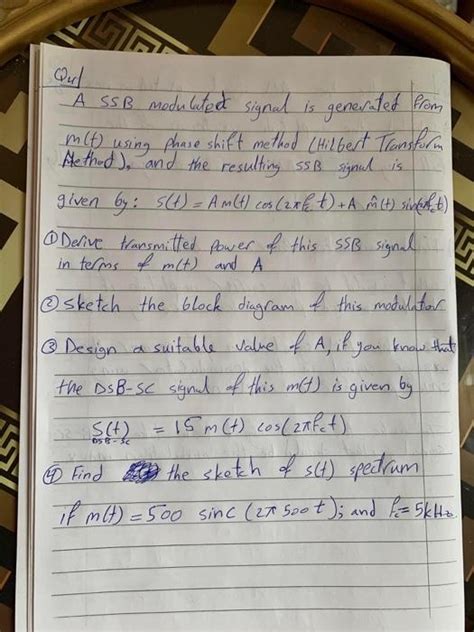 Qu/
A SSB modulated signal is generated from
m(t) using phase shift method (Hilbert Transform
Method), and the resulting SSB signal is
given by: s(t) = A m(t) cos(2πfct) + A m̂(t) sin(2πfct)
① Derive transmitted power of this SSB signal
in terms of m(t) and A
② sketch the block diagram of this modulator
③ Design a suitable value of A, if you know that
the DSB-SC signal of this m(t) is given by
S(t) = 15 m(t) cos(2πfct)
DSB-SC
④ Find the sketch of s(t) spectrum
if m(t) = 500 sinc (2π 500t); and fc = 5kHz.